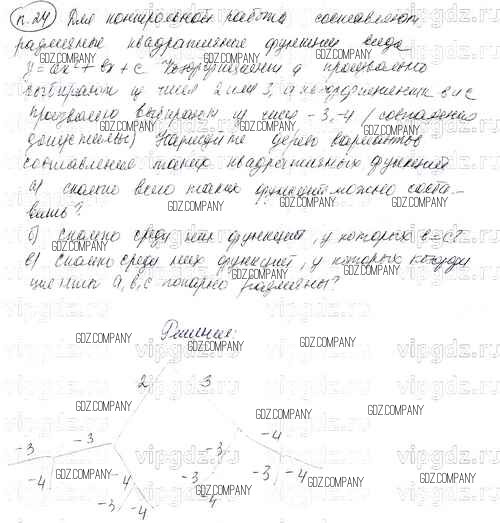 п.24 Для контрольной работы составляют
различные квадратичные функции вида
y = ax² + bx + c Коэффициент a произвольно
выбирают из чисел 2 или 3, а коэффициенты в и с
произвольно выбирают из чисел -3, -4 (совпадения
допустимы) Нарисуйте дерево вариантов
составления таких квадратичных функций
а) сколько всего таких функций можно соста-
вить?
б) Сколько среди них функций, у которых в=с?
в) Сколько среди них функций, у которых коэффи
циенты а, в, с попарно различны?
Решение:
2 3
-3 -3 -3 -4
-4 -4 -3 -3 -4
-3 -4 -4
GDZ.COMPANY
vipgdz.ru